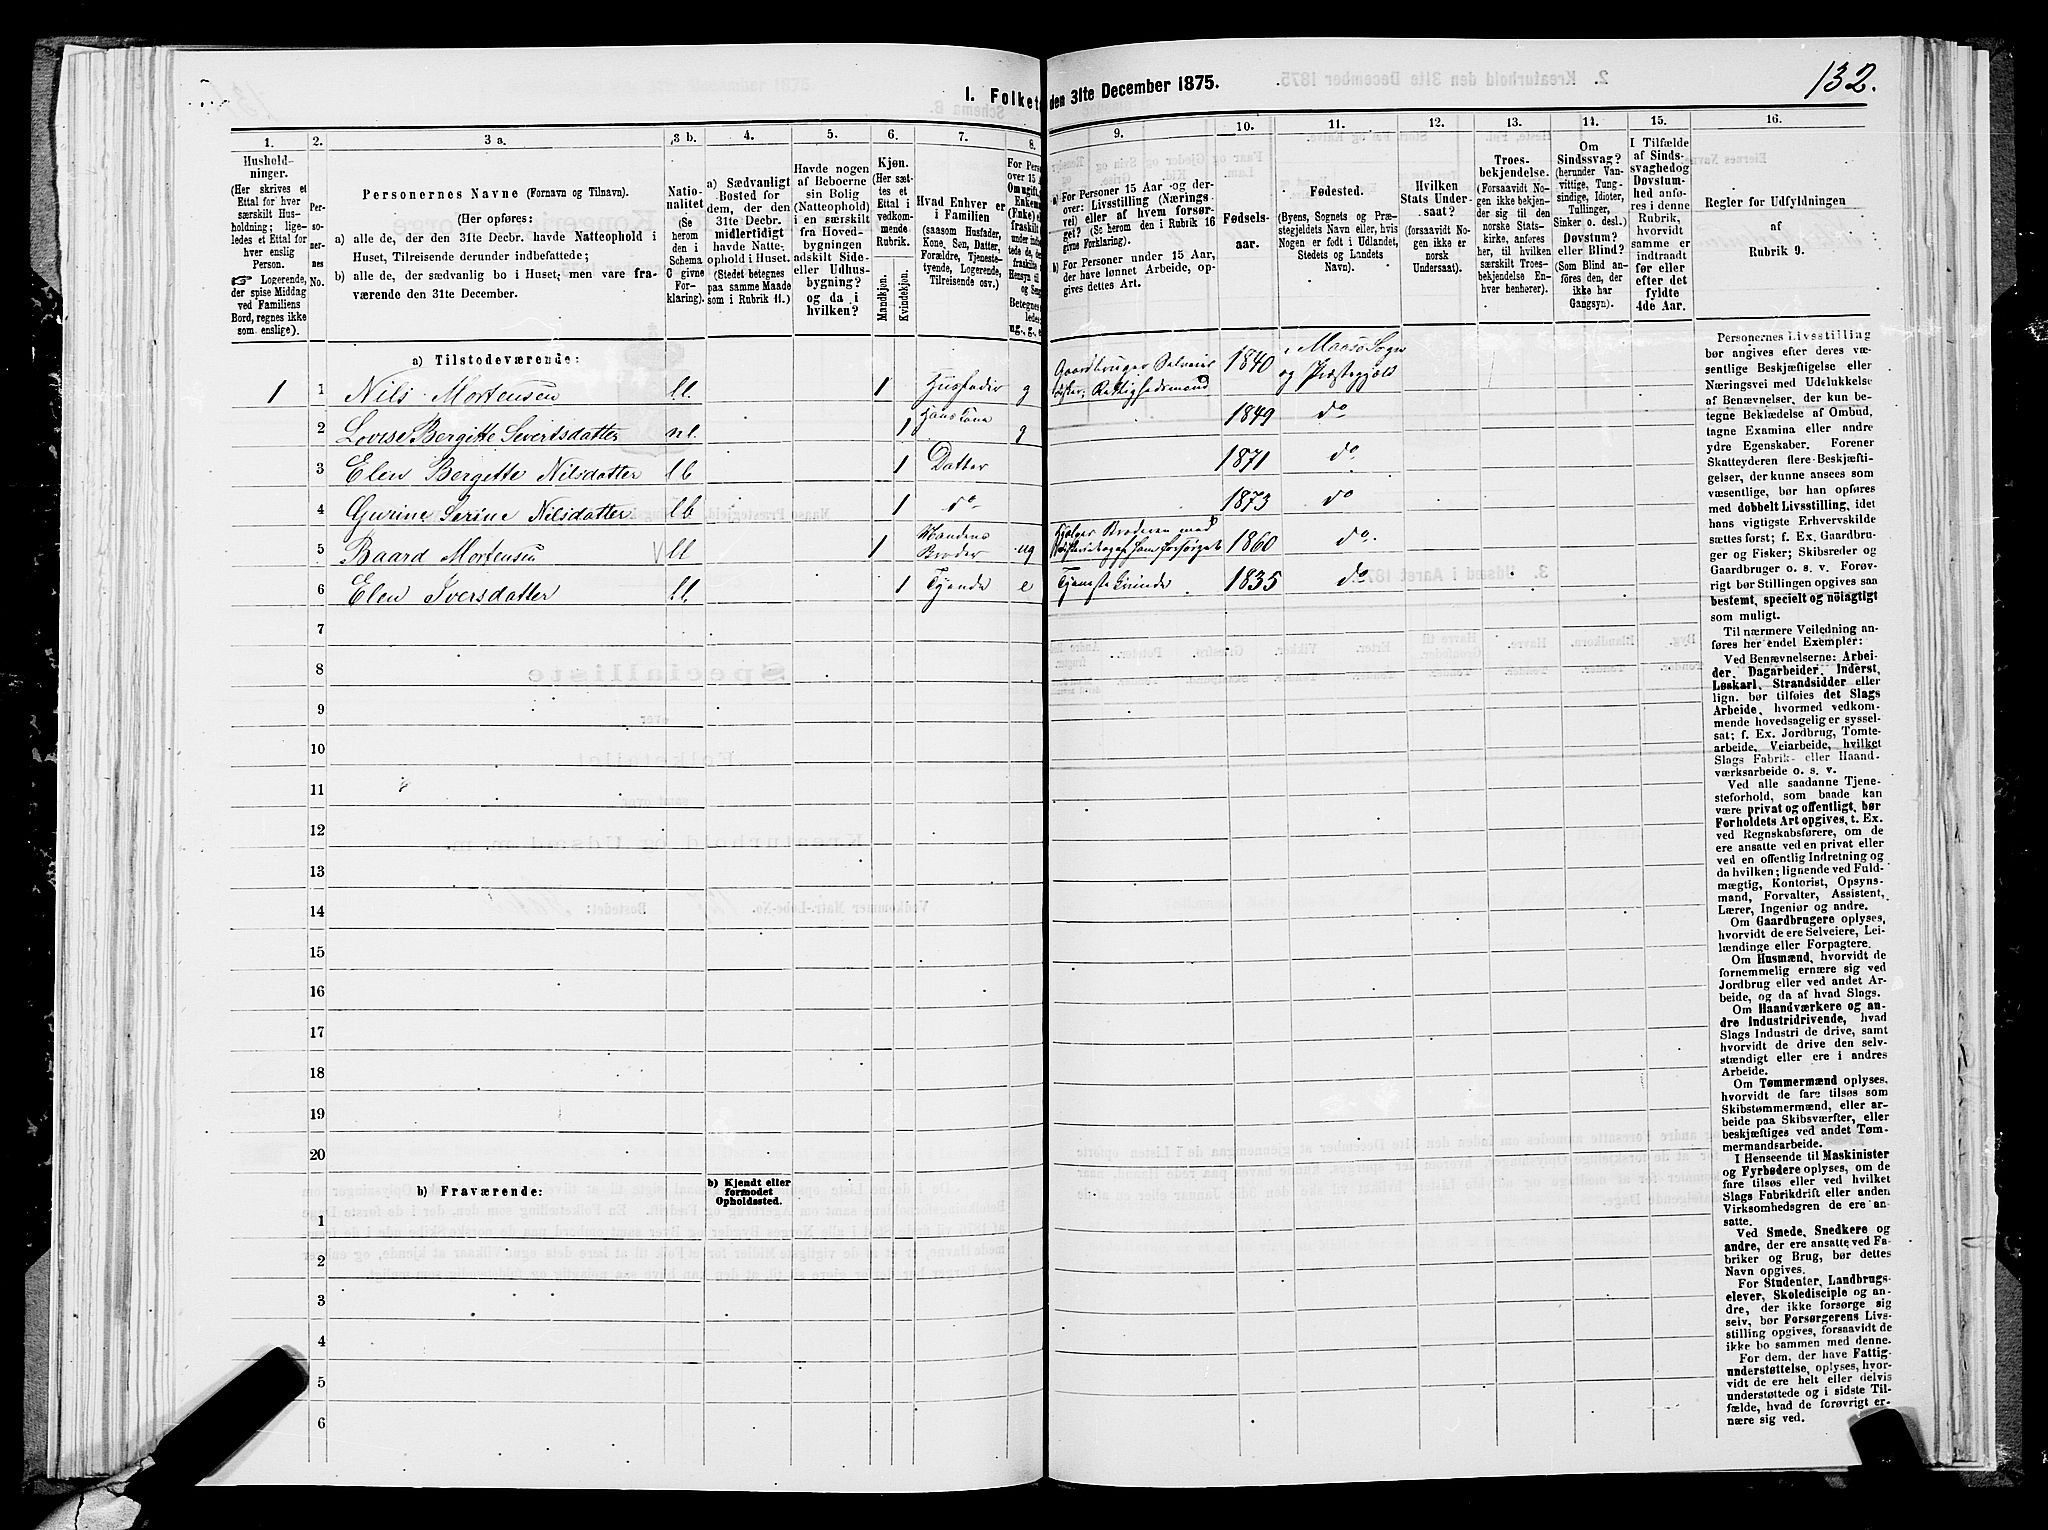 132.
I. Folket
den 31te December 1875.
1.
2.
3 a.
3 b.
4.
5.
6.
7.
8.
9.
10.
11.
12.
13.
14.
15.
16.
Hushold-
ninger.
(Her skrives et
Ettal for hver
særskilt Hus-
holdning; lige-
ledes et Ettal for
hver enslig
Person.
☞ Logerende,
der spise Middag
ved Familiens
Bord, regnes ikke
som enslige).
Per-
so-
ner-
nes
No.
Personernes Navne (Fornavn og Tilnavn).
(Her opføres:
a) alle de, der den 31te Decbr. havde Natteophold i
Huset, Tilreisende derunder indbefattede;
b) alle de, der sædvanlig bo i Huset, men vare fra-
værende den 31te December.
Natio-
nalitet
(Se
herom
den i
Schema
C givne
For-
klaring).
a) Sædvanligt
Bosted for
dem, der den
31te Decbr.
midlertidigt
havde Natte-
ophold i Huset.
(Stedet betegnes
paa samme Maade
som i Rubrik 11.)
Havde nogen
af Beboerne
sin Bolig
(Natteophold)
i en særskilt
fra Hoved-
bygningen
adskilt Side-
eller Udhus-
bygning?
og da i
hvilken?
Kjøn.
(Her sæt-
tes et
Ettal i
vedkom-
mende
Rubrik.
Mandkjøn.
Kvindekjøn.
Hvad Enhver er
i Familien
(saasom Husfader,
Kone, Søn, Datter,
Forældre, Tjeneste-
tyende, Logerende,
Tilreisende osv.)
a) For Personer 15 Aar og der-
over: Livsstilling (Nærings-
vei) eller af hvem forsør-
get? (Se herom den i Rubrik 16
givne Forklaring).
b) For Personer under 15 Aar,
der have lønnet Arbeide, op-
gives dettes Art.
Fødsels-
aar.
Fødested.
(Byens, Sognets og Præ-
stegjeldets Navn, eller, hvis
Nogen er født i Udlandet,
Stedets og Landets
Navn).
Hvilken
Stats Under-
saat?
(forsaavidt No-
gen ikke er
norsk
Undersaat).
Troes-
bekjendelse.
(Forsaavidt No-
gen ikke bekjen-
der sig til den
norske Stats-
kirke, anføres
her, til hvilken
særskilt Troes-
bekjendelse En-
hver henhører).
Om
Sindssvag?
(herunder Van-
vittige, Tung-
sindige, Idioter,
Tullinger,
Sinker o. desl.)
Døvstum?
eller Blind?
(Som Blind an-
føres den, der
ikke har
Gangsyn).
I Tilfælde
af Sinds-
svaghed og
Døvstum-
hed anfø-
res i denne
Rubrik,
hvorvidt
samme er
indtraadt
før eller
efter det
fyldte
4de Aar.
Regler for Udfyldningen
af
Rubrik 9.
a) Tilstodeværende:
1 1 Nils Mortensen ll. 1 Husfader g Gaardbruger Selveier 1840 i Maasø Sogn og Præstegjeld
2 Lovise Bergitte Sivertsdatter nl. 1 Hans Kone g 1849 do
3 Elen Bergette Nilsdatter lb 1 Datter 1871 do
4 Gurine Serine Nilsdatter lb. 1 do 1873 do
5 Baard Mortensen ll 1 Mandens Broder ug Hjelper Broderen med 1860 do.
6 Elen Iversdatter ll. 1 Tjende e Tjeneste Kvinde 1835 do
7
8
9
10
11
12
13
14
15
16
17
18
19
20
b) Fraværende:
b) Kjendt eller
formodet
Opholdssted.
1
2
3
4
5
6
Personernes Livsstilling
bør angives efter deres væ-
sentlige Beskjæftigelse eller
Næringsvei med Udelukkelse
af Benævnelser, der kun be-
tegne Beklædelse af Ombud,
tagne Examina eller andre
ydre Egenskaber. Forener
Skatteyderen flere Beskjæfti-
gelser, der kunne ansees som
væsentlige, bør han opføres
med dobbelt Livsstilling, idet
hans vigtigste Erhvervskilde
sættes først; f. Ex. Gaardbru-
ger og Fisker; Skibsreder og
Gaardbruger o. s. v. Forøv-
rigt bør Stillingen opgives saa
bestemt, specielt og nöiagtigt
som muligt.
Til nærmere Veiledning an-
føres her endel Exempler:
Ved Benævnelserne: Arbei-
der, Dagarbeider, Inderst,
Løskarl, Strandsidder eller
lign. bør tilføies det Slags
Arbeide, hvormed vedkom-
mende hovedsagelig er syssel-
sat; f. Ex. Jordbrug, Tomte-
arbeide, Veiarbeide, hvilket
Slags Fabrik- eller Haand-
værksarbeide o. s. v.
Ved alle saadanne Tjene-
steforhold, som baade kan
være privat og offentligt, bør
Forholdets Art opgives, t. Ex.
ved Regnskabsførere, om de
ere ansatte ved en privat eller
ved en offentlig Indretning og
da hvilken; lignende ved Fuld-
mægtig, Kontorist, Opsyns-
mand, Forvalter, Assistent,
Lærer, Ingeniør og andre.
Om Gaardbrugere oplyses,
hvorvidt de ere Selveiere, Lei-
lændinge eller Forpagtere.
Om Husmænd, hvorvidt de
fornemmelig ernære sig ved
Jordbrug eller ved andet Ar-
beide, og da af hvad Slags.
Om Haandværkere og an-
dre Industridrivende, hvad
Slags Industri de drive, samt
hvorvidt de drive den selv-
stændigt eller ere i andres
Arbeide.
Om Tømmermænd oplyses,
hvorvidt de fare tilsøs som
Skibstømmermænd, eller ar-
beide paa Skibsværfter, eller
beskjæftiges ved andet Tøm-
mermandsarbeide.
I Henseende til Maskinister
og Fyrbødere oplyses, om de
fare tilsøs eller ved hvilket
Slags Fabrikdrift eller anden
Virksomhedsgren de ere an-
satte.
Ved Smede, Snedkere og
andre, der ere ansatte ved Fa-
briker og Brug, bør dettes
Navn opgives.
For Studenter, Landbrugs-
elever, Skoledisciple og an-
dre, der ikke forsørge sig
selv, bør Forsørgerens Livs-
stilling opgives, forsaavidt de
ikke bo sammen med denne.
For dem, der have Fattig-
understøttelse, oplyses, hvor-
vidt de ere helt eller delvis
understøttede og i sidste Til-
fælde, hvad de forøvrigt er-
nære sig ved.